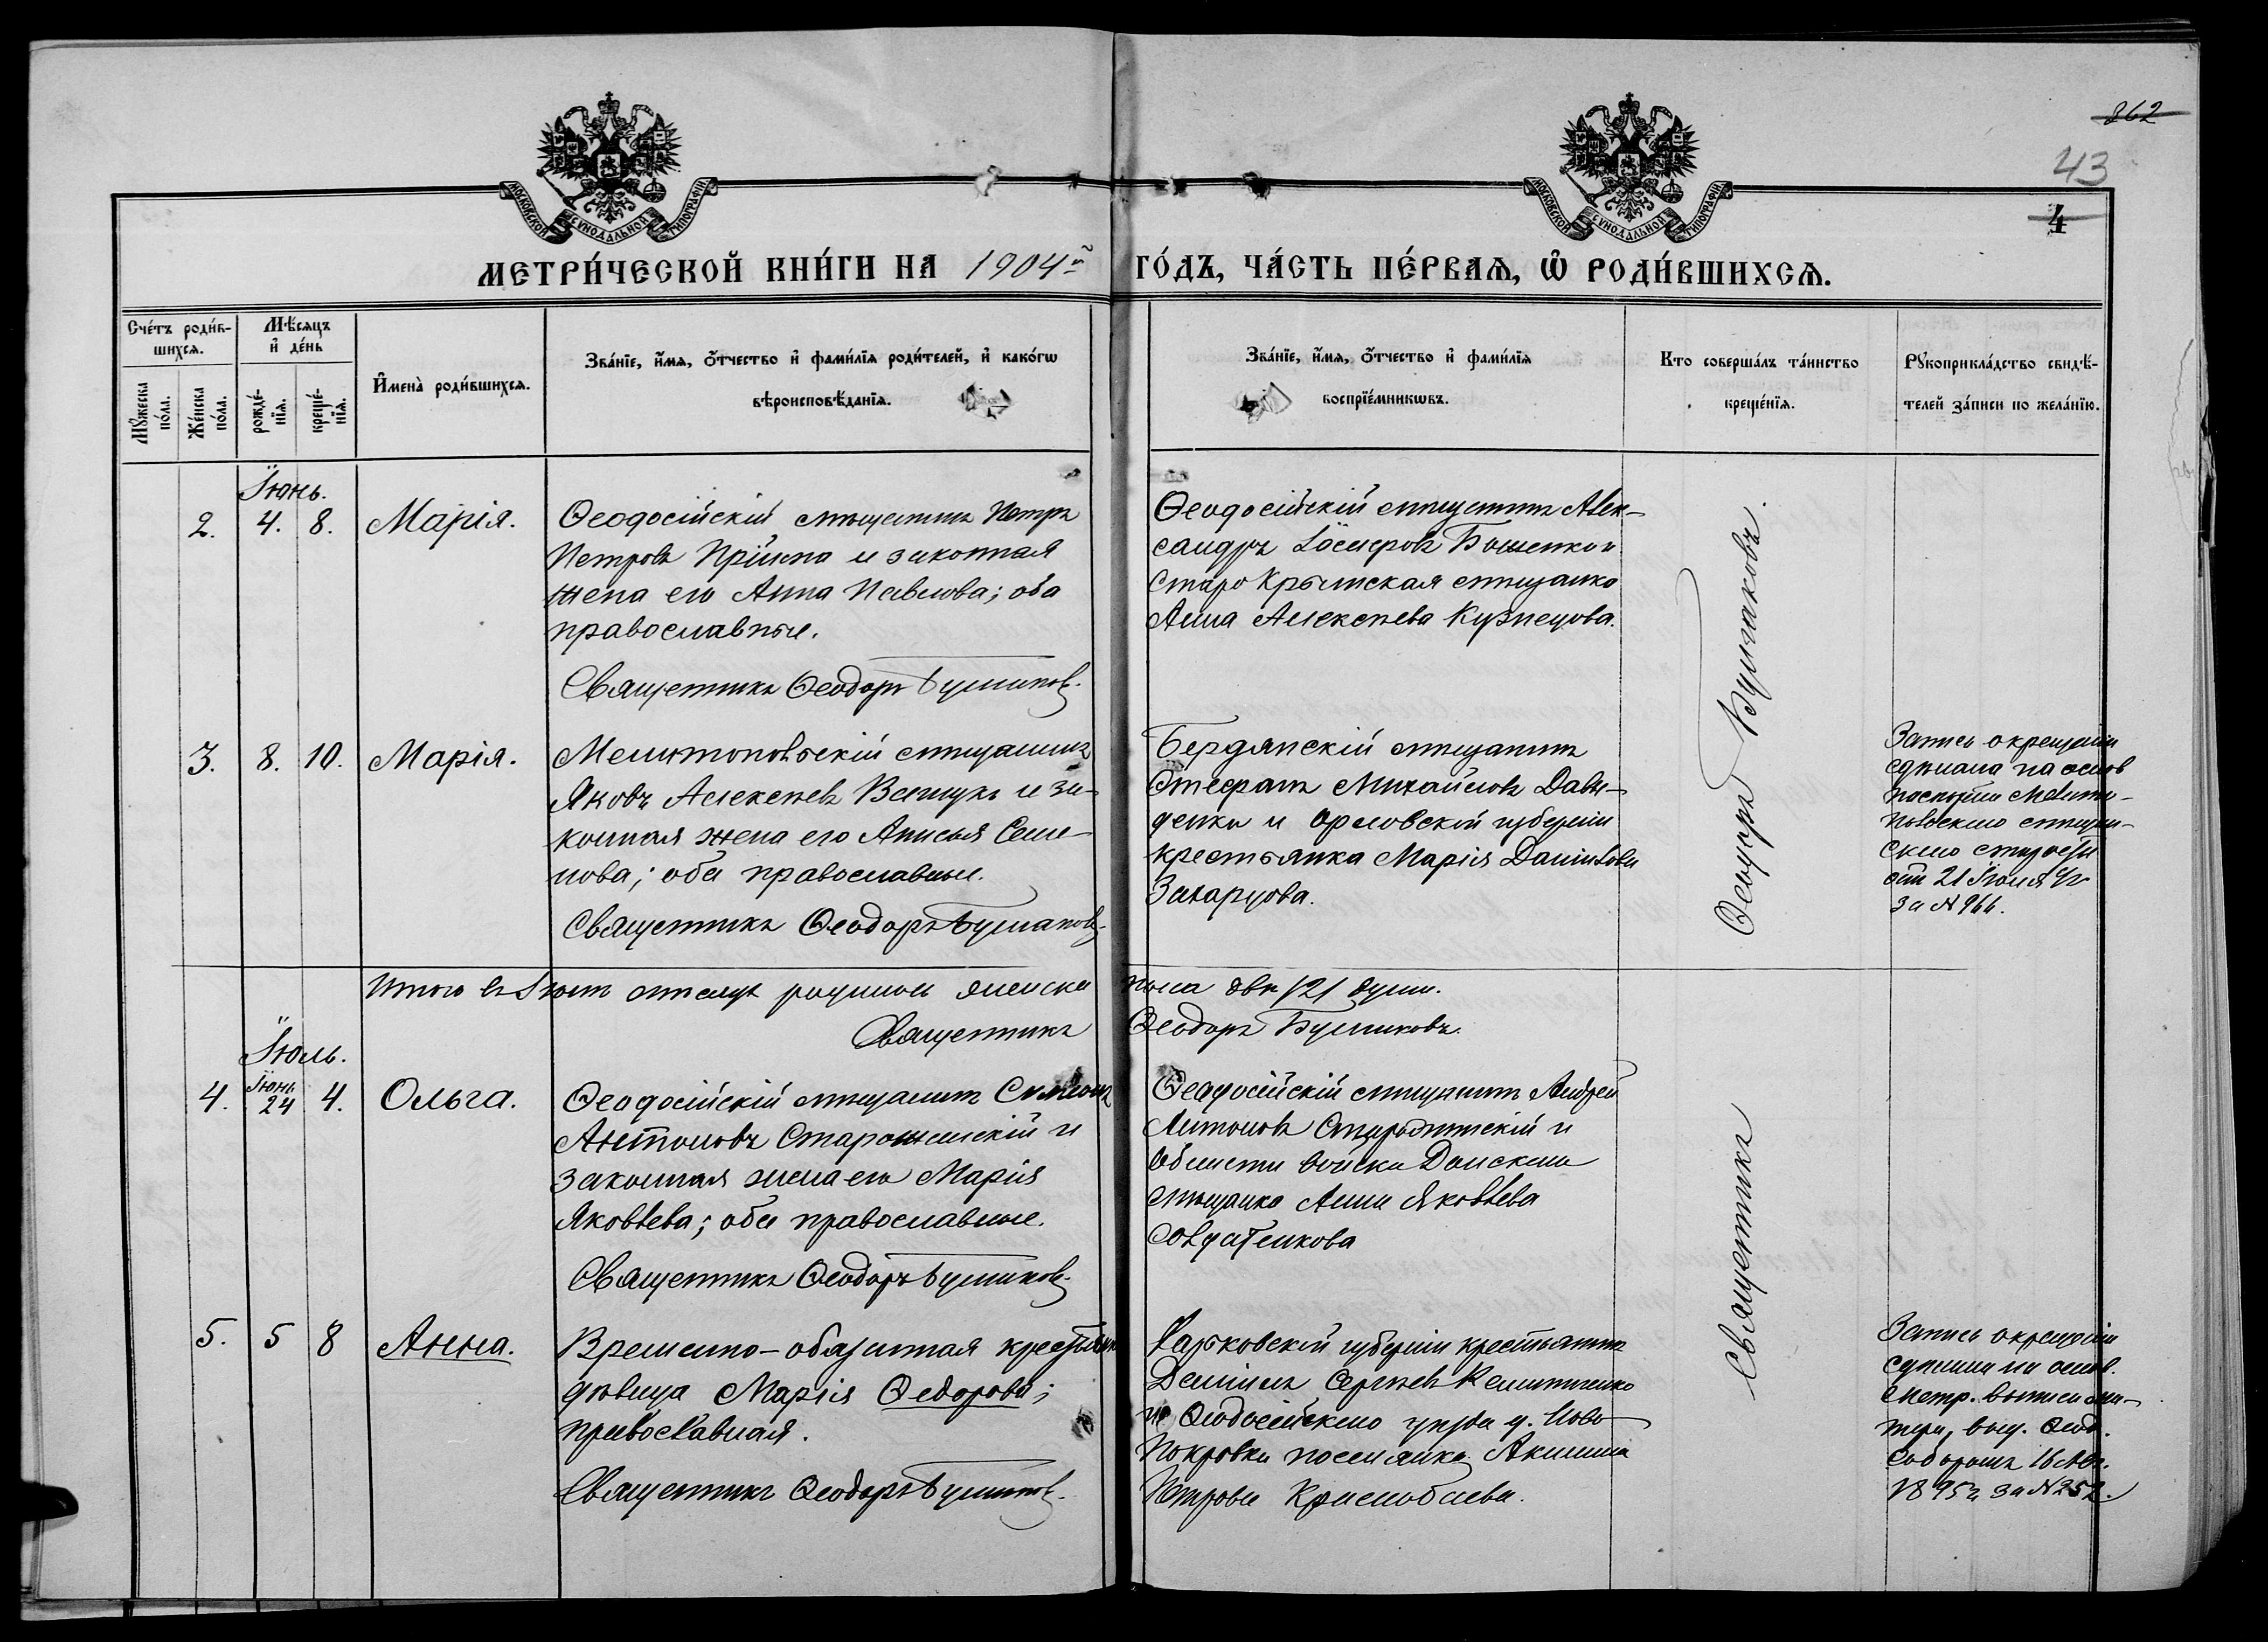 862
43
4
МОСКОВСКОЙ СѴНОДАЛЬНОЙ ТИПОГРАФІИ
МОСКОВСКОЙ СѴНОДАЛЬНОЙ ТИПОГРАФІИ
МЕТРИ́ЧЕСКОЙ КНИ́ГИ НА 1904й ГО́ДЪ, ЧА́СТЬ ПЕ́РВАѦ, Ѽ РОДИ́ВШИХСѦ.
Сче́тъ роди́в-
шихсѧ.
Мꙋ́жеска
по́ла.
Же́нска
по́ла.
Мѣ́сѧцъ
и҆ де́нь
рожде́-
нїѧ.
креще́-
нїѧ.
И҆мена̀ роди́вшихсѧ.
Зва́нїе, и҆́мѧ, ѻ҆́тчество и҆ фами́лїѧ роди́телей, и҆ како́гѡ
вѣроисповѣ́данїѧ.
Зва́нїе, и҆́мѧ, ѻ҆́тчество и҆ фами́лїѧ
воспрїе́мникѡвъ.
Кто соверша́лъ та́инство
креще́нїѧ.
Рꙋкоприкла́дство свидѣ́-
телей за́писи по жела́нїю.
Іюнь.
2. 4. 8. Марія.
Ѳеодосійскій мѣщанинъ Петръ
Петровъ и законная
жена его Анна Павлова; оба
православные.
Священникъ Ѳеодоръ Булгаковъ.
Ѳеодосійскій мѣщанинъ Алек-
сандръ и
Старо Крымская мѣщанка
Анна Алексѣева Кузнецова.
3. 8. 10. Марія.
Мелитопольскій мѣщанинъ
Яковъ Алексѣевъ и за-
конная жена его Анисья Семе-
нова; оба православные.
Священникъ Ѳеодоръ Булгаковъ.
Бердянскій мѣщанинъ
Стефанъ Михайловъ Давы-
денко и Орловской губерніи
крестьянка Марія Даніилова
Захарцова.
Запись о крещеніи
сдѣлана на основ.
паспорта Мелито-
польскаго мѣщан-
скаго старосты
отъ 21 Іюля
за № 966.
Итого въ Іюнѣ мѣсяцѣ родилось женска пола двѣ /2/ души.
Священникъ Ѳеодоръ Булгаковъ.
Іюль.
4. Іюнь 24 4. Ольга.
Ѳеодосійскій мѣщанинъ Симеонъ
Антоновъ и
законная жена его Марія
Яковлева; оба православные.
Священникъ Ѳеодоръ Булгаковъ.
Ѳеодосійскій мѣщанинъ Андрей
Антоновъ и
Области войска Донскаго
мѣщанка Анна Яковлева
Солдатенкова
5. 5 8 Анна.
Временно-обязанная крестьянка
дѣвица Марія Ѳедорова;
православная.
Священникъ Ѳеодоръ Булгаковъ.
Харьковской губерніи крестьянинъ
Даніилъ Сергѣевъ
и Ѳеодосійскаго уѣзда д. Ново-
Покровки поселянка Акилина
Петрова Краснобаева.
Запись о крещеніи
сдѣлана на основ.
метр. выписи ма-
тери, выд. Ѳеод.
Соборомъ 16 Авг.
1895 г. за № 252.
Священникъ Ѳеодоръ Булгаковъ.